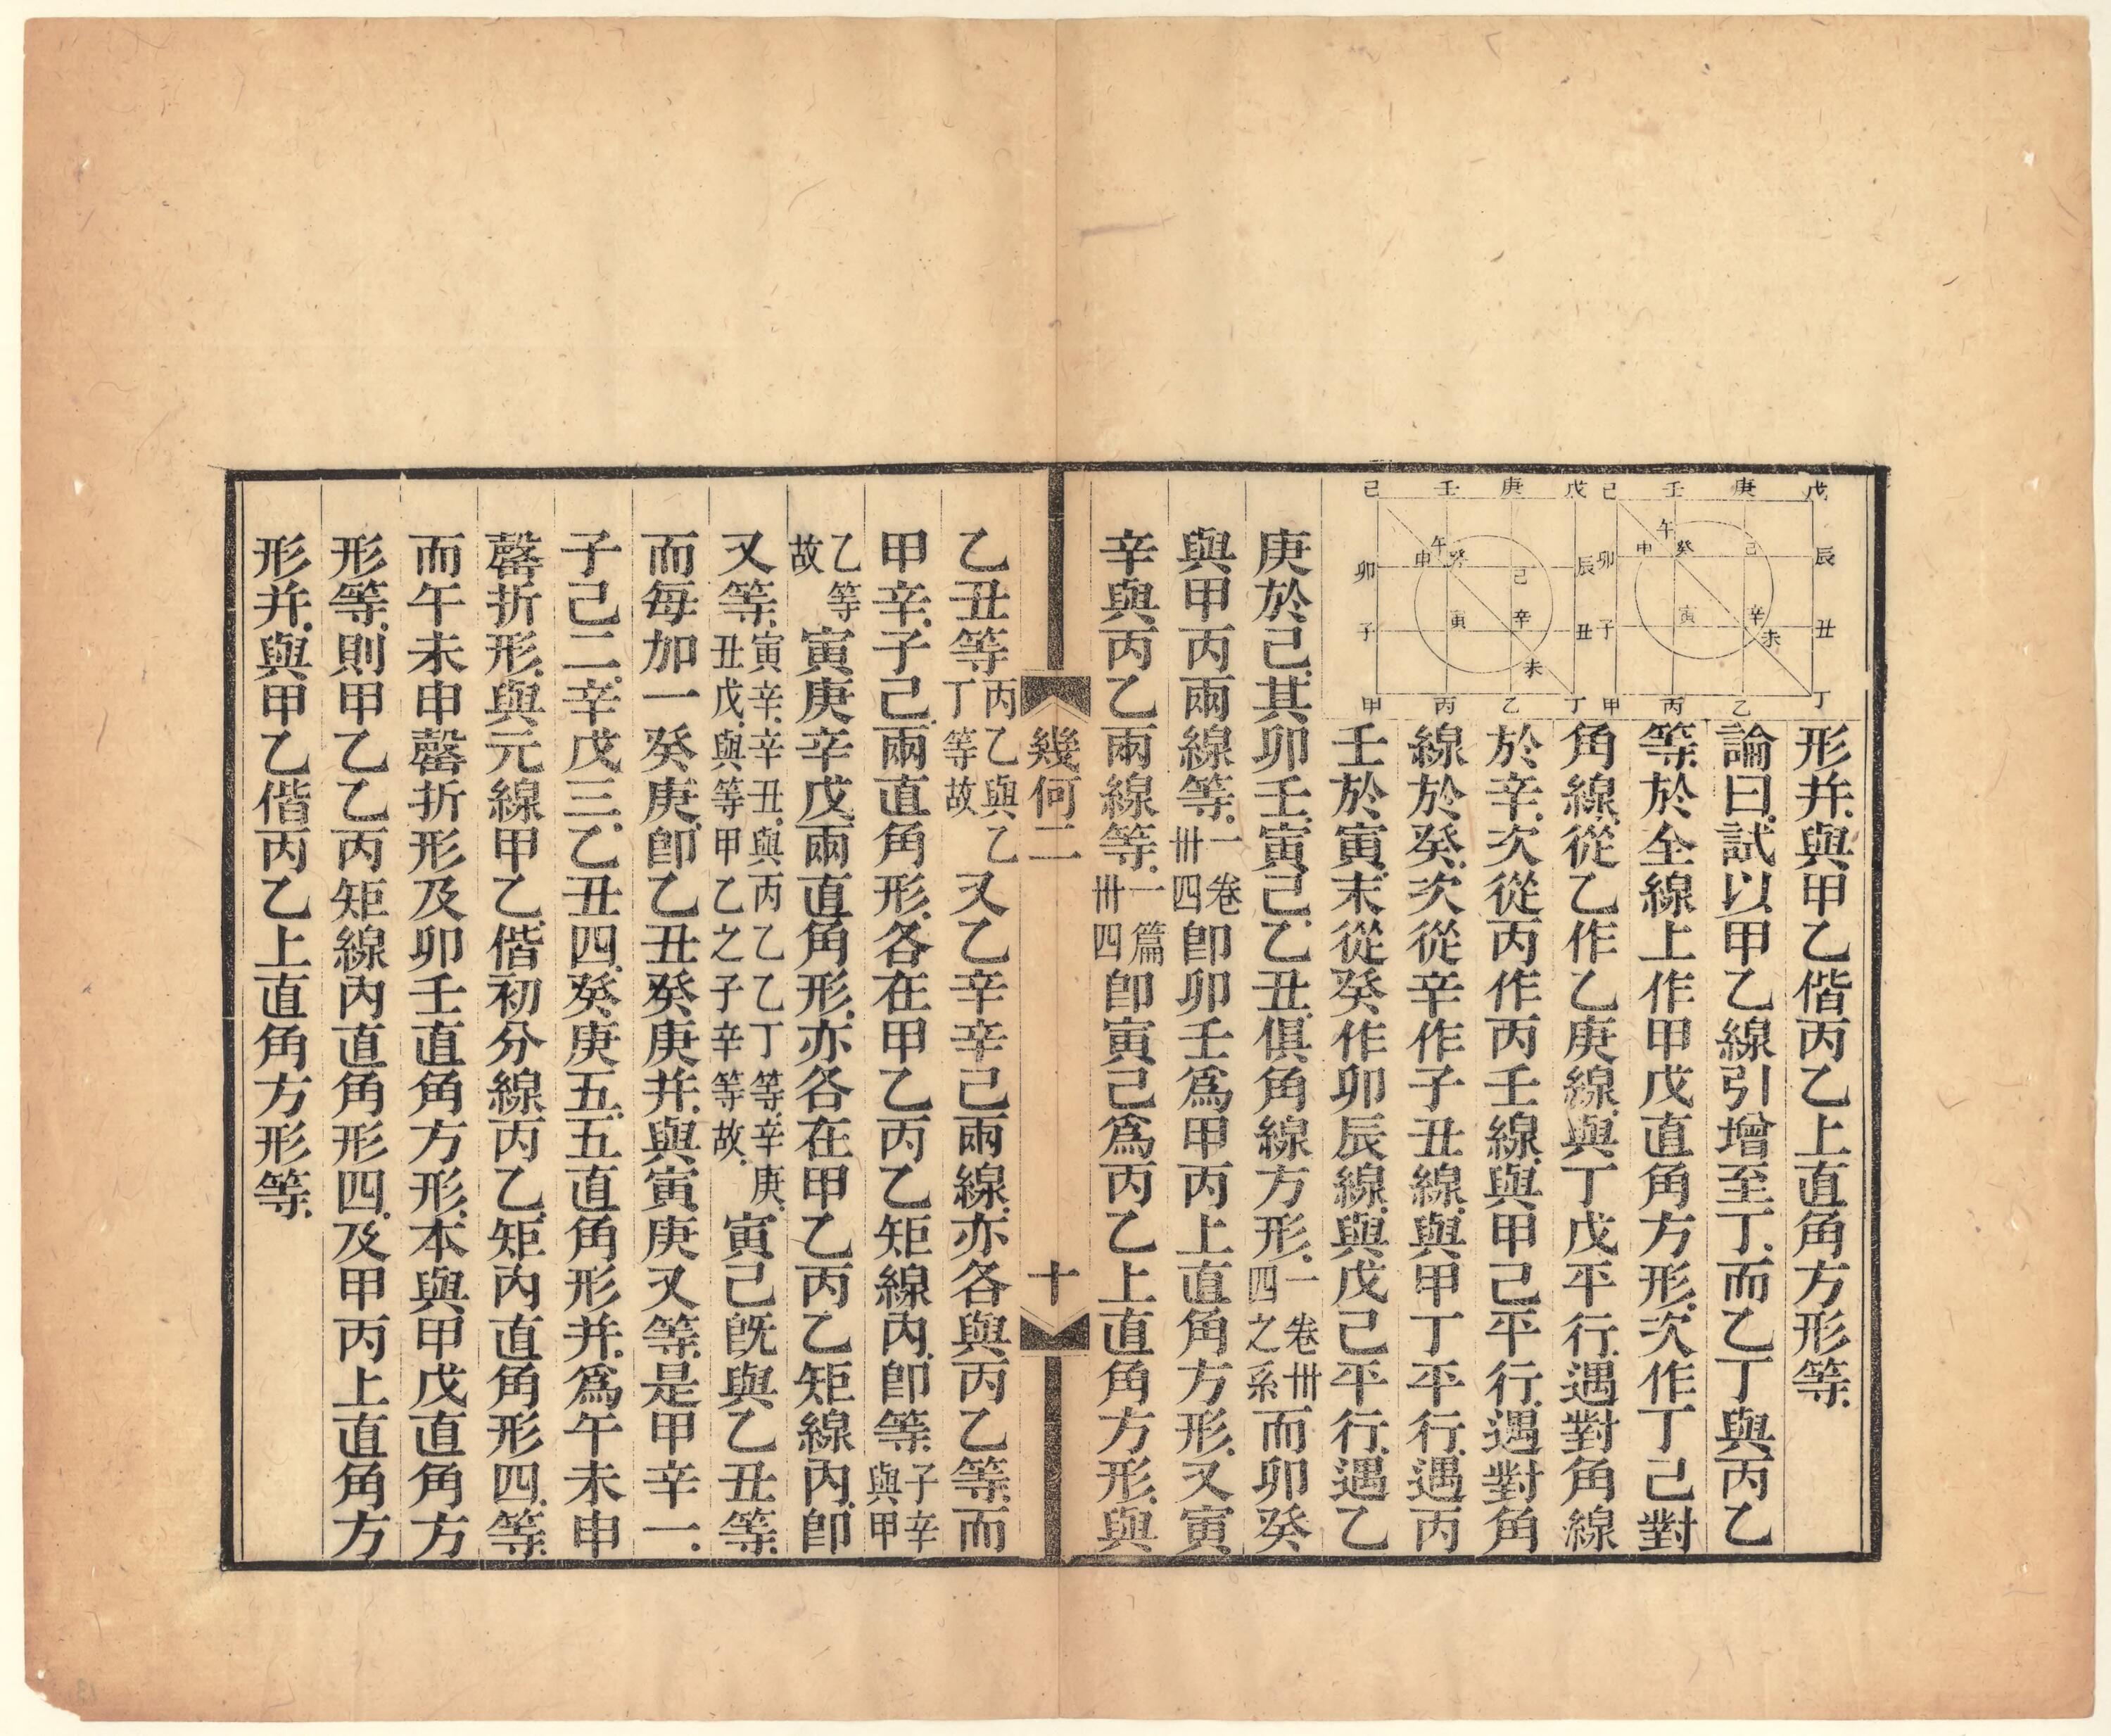 戊 庚 壬 己 戊 庚 壬 己
午 午
辰 己 癸 申 卯 辰 己 癸 申 卯
丑 辛 寅 子 丑 辛 寅 子
未 未
丁 乙 丙 甲 丁 乙 丙 甲
形并與甲乙偕丙乙上直角方形等
論曰試以甲乙線引增至丁而乙丁與丙乙
等於全線上作甲戊直角方形次作丁己對
角線從乙作乙庚線與丁戊平行遇對角線
於辛次從丙作丙壬線與甲己平行遇對角
線於癸次從辛作子丑線與甲丁平行遇丙
壬於寅末從癸作卯辰線與戊己平行遇乙
庚於己其卯壬寅己乙丑俱角線方形一卷卅四之系而卯癸
與甲丙兩線等一卷卅四卽卯壬爲甲丙上直角方形又寅
辛與丙乙兩線等一篇卅四卽寅己爲丙乙上直角方形與
幾何二 十
乙丑等丙乙與乙丁等故又乙辛辛己兩線亦各與丙乙等而
甲辛子己兩直角形各在甲乙丙乙矩線內卽等子辛與甲
乙等故寅庚辛戊兩直角形亦各在甲乙丙乙矩線內卽
又等寅辛辛丑與丙乙乙丁等辛庚丑戊與等甲乙之子辛等故寅己旣與乙丑等
而每加一癸庚卽乙丑癸庚并與寅庚又等是甲辛一
子己二辛戊三乙丑四癸庚五五直角形并爲午未申
罄折形與元線甲乙偕初分線丙乙矩內直角形四等
而午未申罄折形及卯壬直角方形本與甲戊直角方
形等則甲乙乙丙矩線內直角形四及甲丙上直角方
形并與甲乙偕丙乙上直角方形等